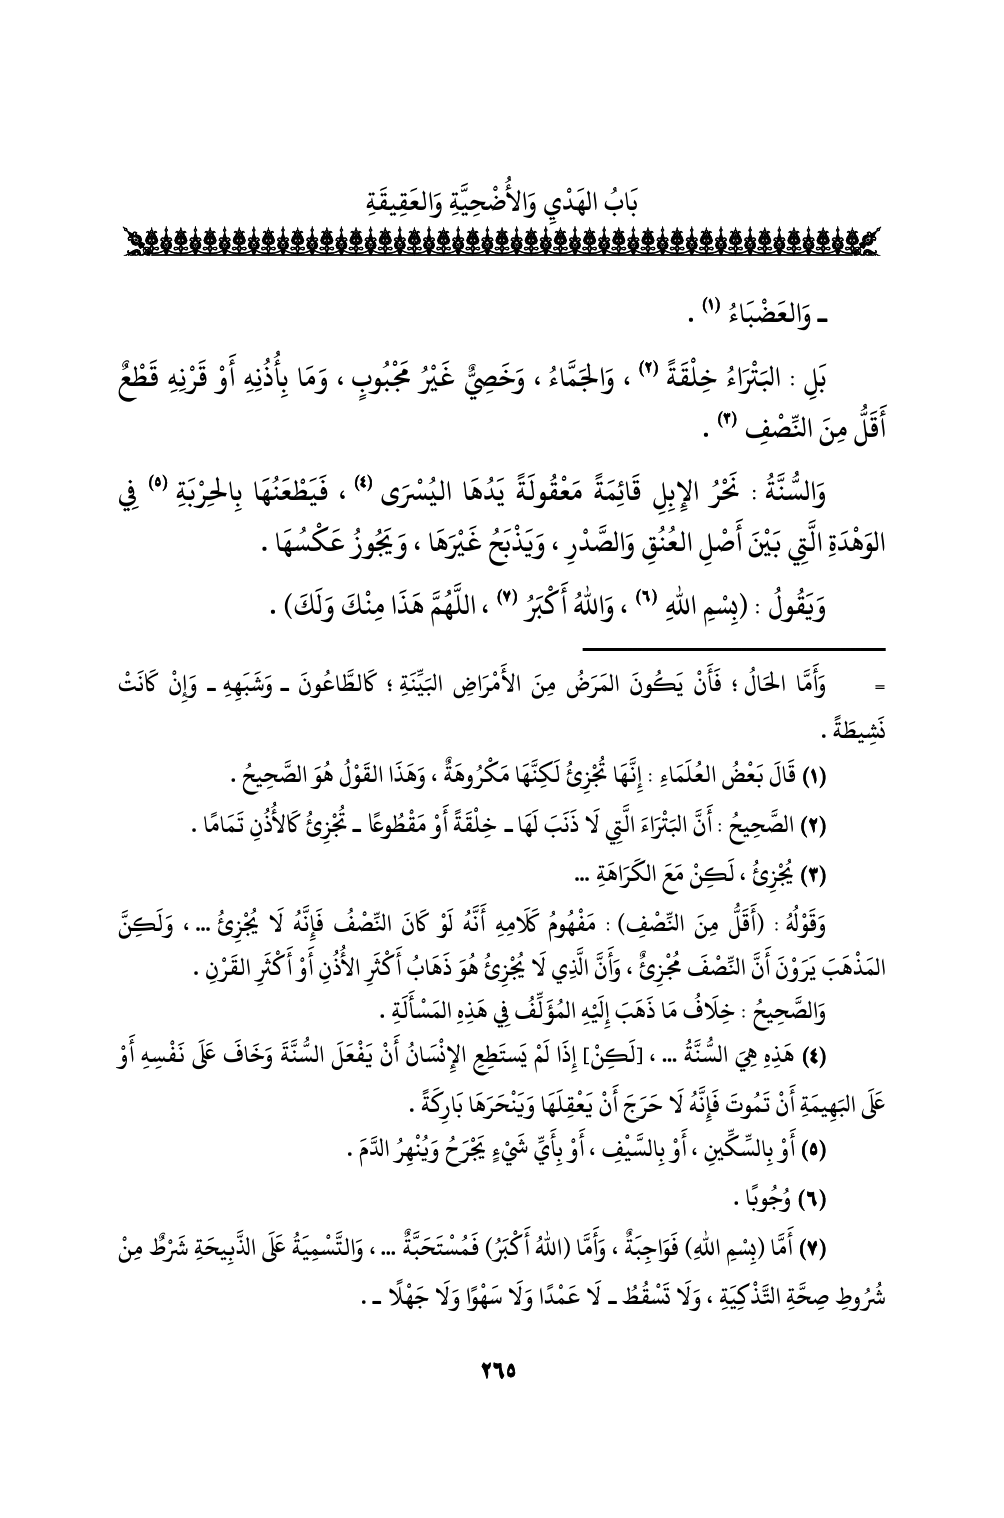 بَابُ الهَدْيِ وَالأُضْحِيَّةِ وَالعَقِيقَةِ
ـ وَالعَضْبَاءُ (١) .
بَلِ : البَتْرَاءُ خِلْقَةً (٢) ، وَالجَمَّاءُ ، وَخَصِيٌّ غَيْرُ مَجْبُوبٍ ، وَمَا بِأُذُنِهِ أَوْ قَرْنِهِ قَطْعٌ
أَقَلُّ مِنَ النِّصْفِ (٣) .
وَالسُّنَّةُ : نَحْرُ الإِبِلِ قَائِمَةً مَعْقُولَةً يَدُهَا اليُسْرَى (٤) ، فَيَطْعَنُهَا بِالحِرْبَةِ (٥) فِي
الوَهْدَةِ الَّتِي بَيْنَ أَصْلِ العُنُقِ وَالصَّدْرِ ، وَيَذْبَحُ غَيْرَهَا ، وَيَجُوزُ عَكْسُهَا .
وَيَقُولُ : (بِسْمِ اللهِ (٦) ، وَاللهُ أَكْبَرُ (٧) ، اللَّهُمَّ هَذَا مِنْكَ وَلَكَ) .
= وَأَمَّا الحَالُ ؛ فَأَنْ يَكُونَ المَرَضُ مِنَ الأَمْرَاضِ البَيِّنَةِ ؛ كَالطَّاعُونَ ـ وَشَبَهِهِ ـ وَإِنْ كَانَتْ
نَشِيطَةً .
(١) قَالَ بَعْضُ العُلَمَاءِ : إِنَّهَا تُجْزِئُ لَكِنَّهَا مَكْرُوهَةٌ ، وَهَذَا القَوْلُ هُوَ الصَّحِيحُ .
(٢) الصَّحِيحُ : أَنَّ البَتْرَاءَ الَّتِي لَا ذَنَبَ لَهَا ـ خِلْقَةً أَوْ مَقْطُوعًا ـ تُجْزِئُ كَالأُذُنِ تَمَامًا .
(٣) يُجْزِئُ ، لَكِنْ مَعَ الكَرَاهَةِ ...
وَقَوْلُهُ : (أَقَلُّ مِنَ النِّصْفِ) : مَفْهُومُ كَلَامِهِ أَنَّهُ لَوْ كَانَ النِّصْفُ فَإِنَّهُ لَا يُجْزِئُ ... ، وَلَكِنَّ
المَذْهَبَ يَرَوْنَ أَنَّ النِّصْفَ مُجْزِئٌ ، وَأَنَّ الَّذِي لَا يُجْزِئُ هُوَ ذَهَابُ أَكْثَرِ الأُذُنِ أَوْ أَكْثَرِ القَرْنِ .
وَالصَّحِيحُ : خِلَافُ مَا ذَهَبَ إِلَيْهِ المُؤَلِّفُ فِي هَذِهِ المَسْأَلَةِ .
(٤) هَذِهِ هِيَ السُّنَّةُ ... ، [لَكِنْ] إِذَا لَمْ يَستَطِعِ الإِنْسَانُ أَنْ يَفْعَلَ السُّنَّةَ وَخَافَ عَلَى نَفْسِهِ أَوْ
عَلَى البَهِيمَةِ أَنْ تَمُوتَ فَإِنَّهُ لَا حَرَجَ أَنْ يَعْقِلَهَا وَيَنْحَرَهَا بَارِكَةً .
(٥) أَوْ بِالسِّكِّينِ ، أَوْ بِالسَّيْفِ ، أَوْ بِأَيِّ شَيْءٍ يَجْرَحُ وَيُنْهِرُ الدَّمَ .
(٦) وُجُوبًا .
(٧) أَمَّا (بِسْمِ اللهِ) فَوَاجِبَةٌ ، وَأَمَّا (اللهُ أَكْبَرُ) فَمُسْتَحَبَّةٌ ... ، وَالتَّسْمِيَةُ عَلَى الذَّبِيحَةِ شَرْطٌ مِنْ
شُرُوطِ صِحَّةِ التَّذْكِيَةِ ، وَلَا تَسْقُطُ ـ لَا عَمْدًا وَلَا سَهْوًا وَلَا جَهْلًا ـ .
٢٦٥